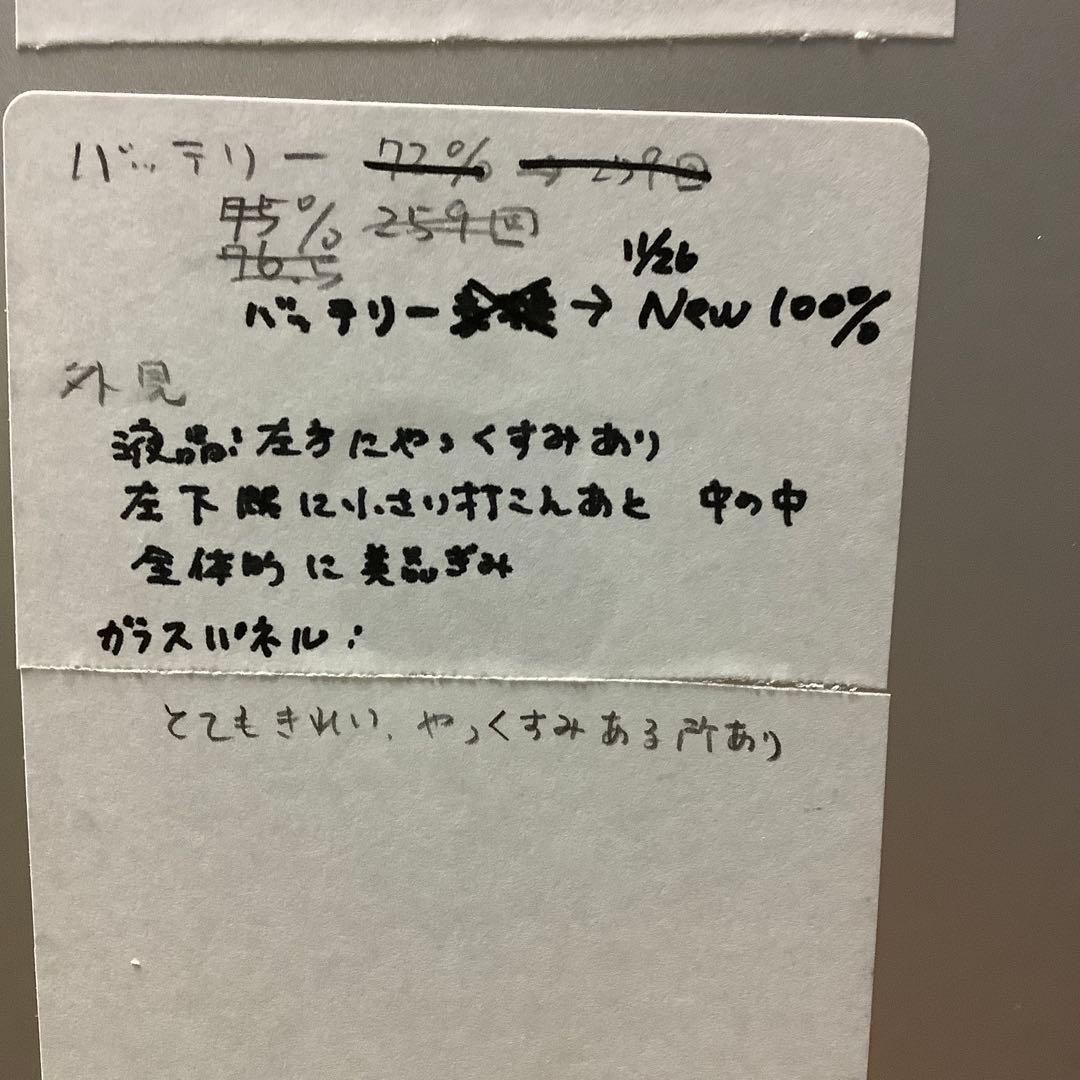 バッテリー 72% → 259回
75% 259回
76.5
11/26
バッテリー → New 100%
外見
液晶：左方にやっくすみあり
左下隅に小さり打こんあと 中の中
全体的に美品ぎみ
ガラスパネル：
とてもきれい、やっくすみある所あり